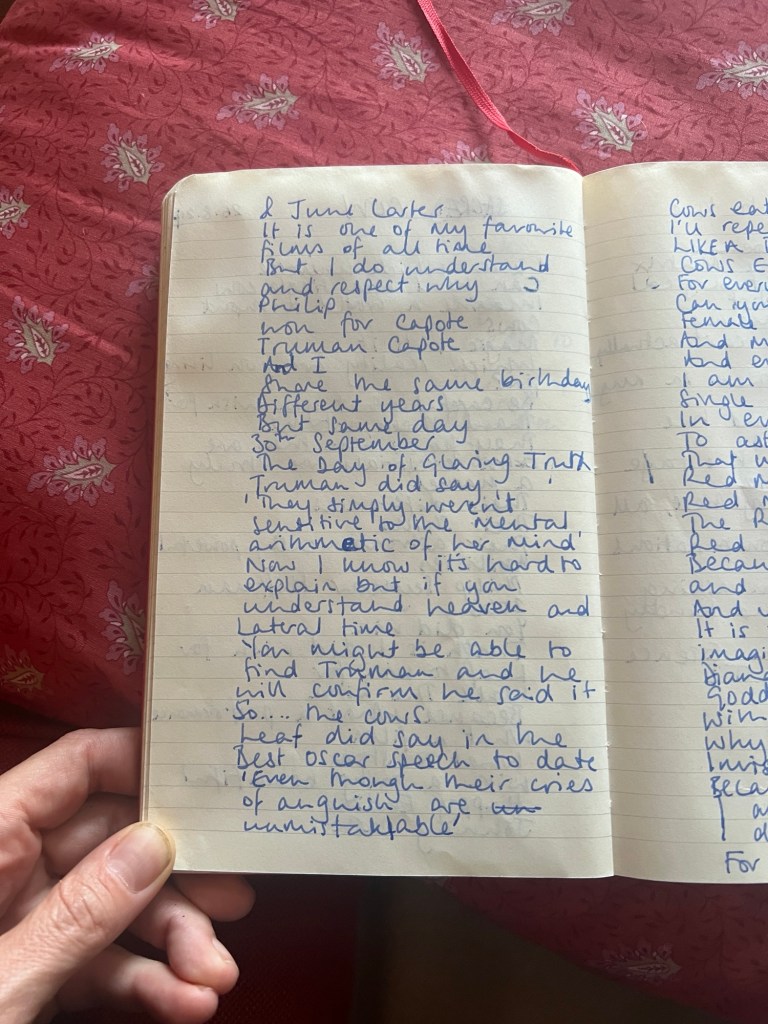 & June Carter
It is one of my favourite
films of all time
But I do understand
and respect why
Philip
won for Capote
Truman Capote
And I
Share the same birthday
Different years
But same day
30th September
The Day of Glaring Truth
Truman did say
'They simply weren't
sensitive to the mental
arithmetic of her mind'
Now I know its hard to
explain but if you
understand heaven and
Lateral time
You might be able to
find Trueman and he
will confirm he said it
So.... the cows
Leaf did say in the
Best Oscar speech to date
'Even though their cries
of anguish are un
unmistakable'
Cows eat
I'll repe
LIKE A
COWS E
For ever
Can you
female
And m
And e
I am
Single
In ev
To as
That w
Red m
Red
The R
Red
Becau
and
And u
It is
imagi
Diana
Godd
With
Why
Invis
Beca
a
d
For